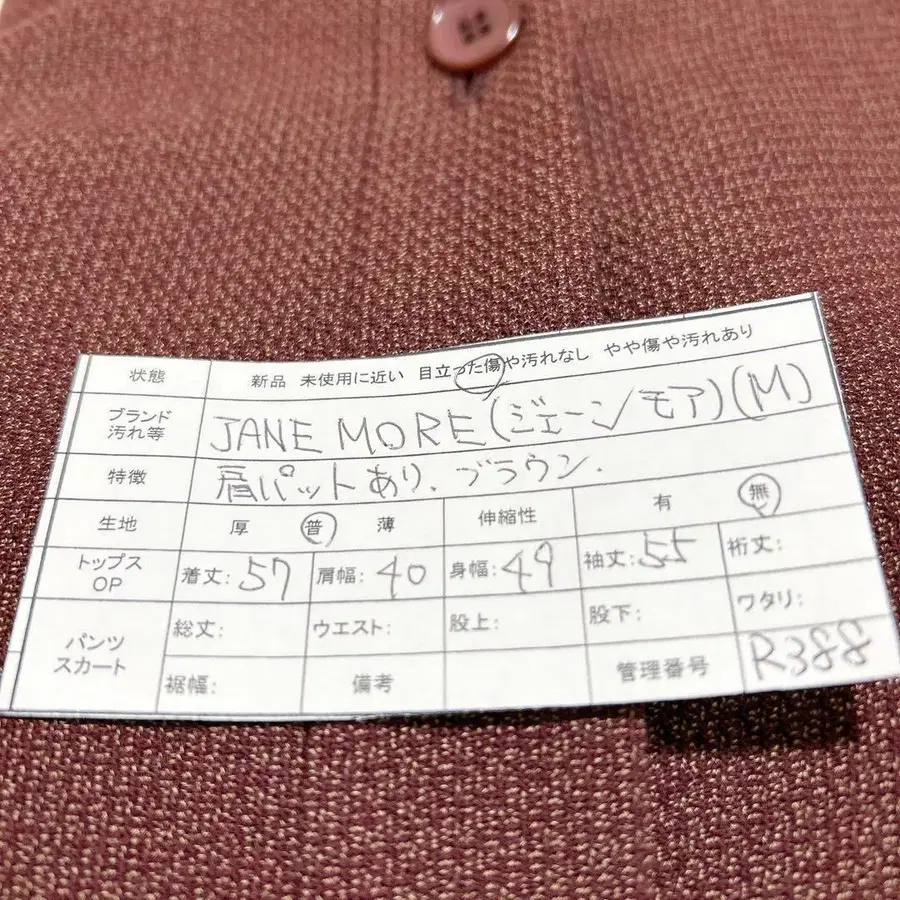 状態 新品 未使用に近い 目立った傷や汚れなし やや傷や汚れあり
ブランド 汚れ等 JANE MORE(ジェーンモア)(M)
特徴 肩パットあり. ブラウン.
生地 厚 普 薄 伸縮性 有 無
トップス OP 着丈:57 肩幅:40 身幅:49 袖丈:55 裄丈:
パンツ スカート 総丈: ウエスト: 股上: 股下: ワタリ:
裾幅: 備考 管理番号 R388